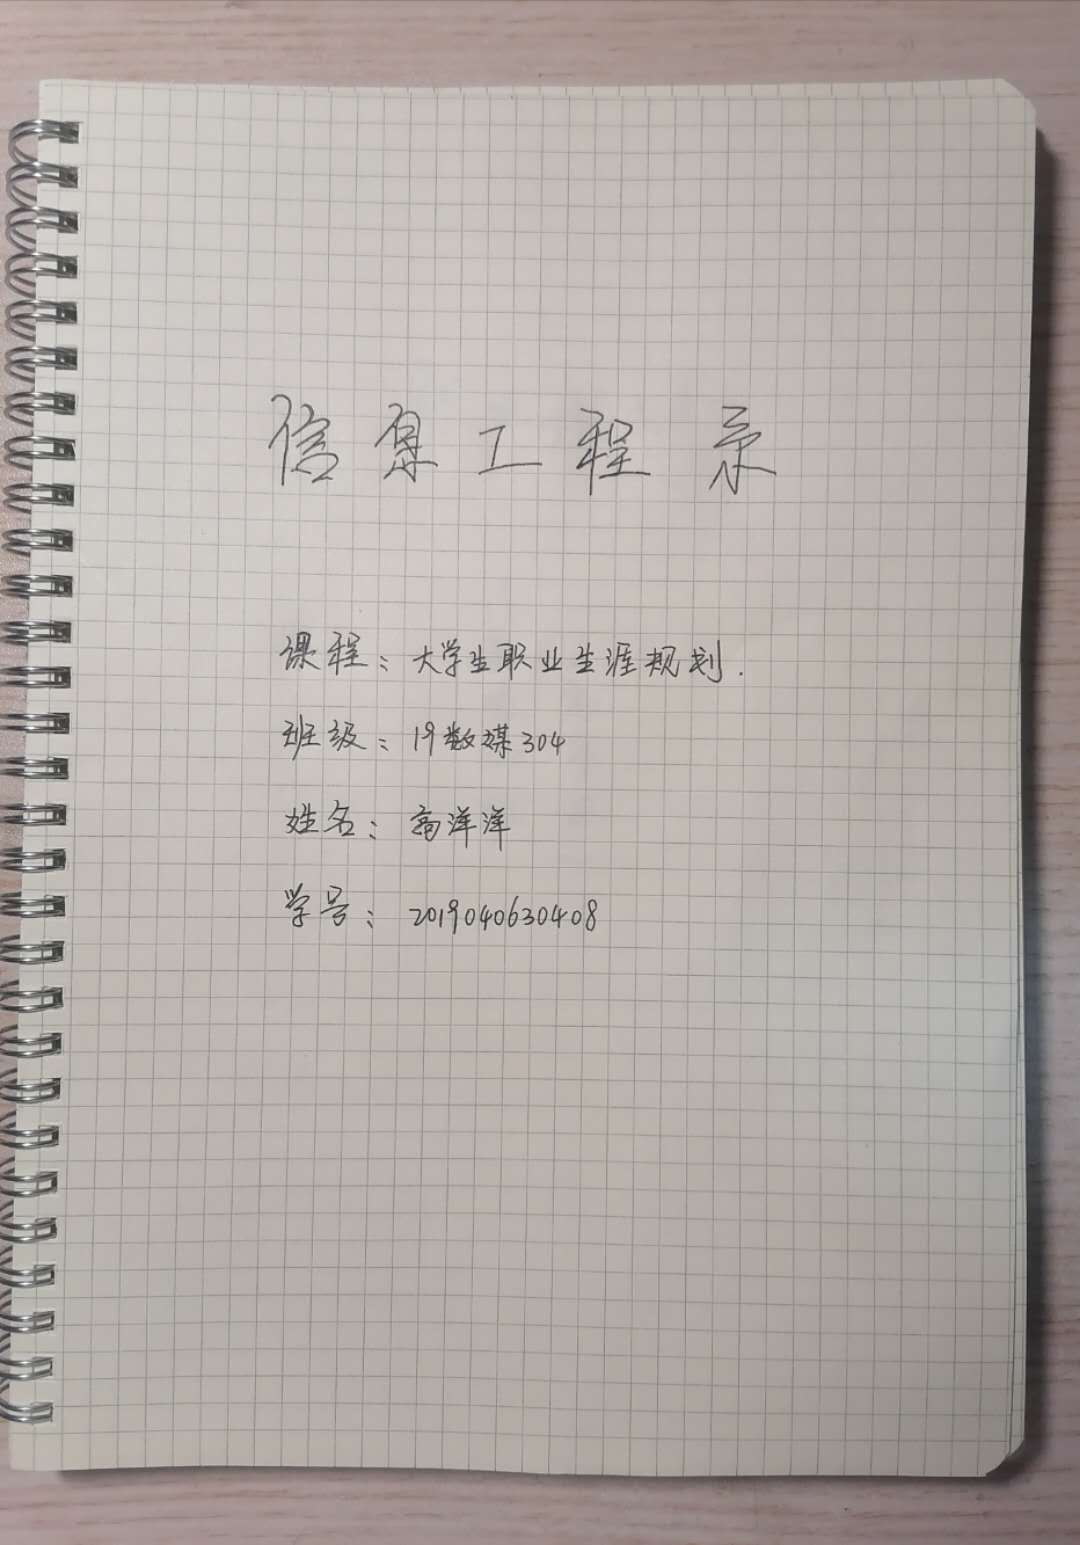 信息工程系
课程：大学生职业生涯规划.
班级：19数媒304
姓名：高洋洋
学号：2019040630408